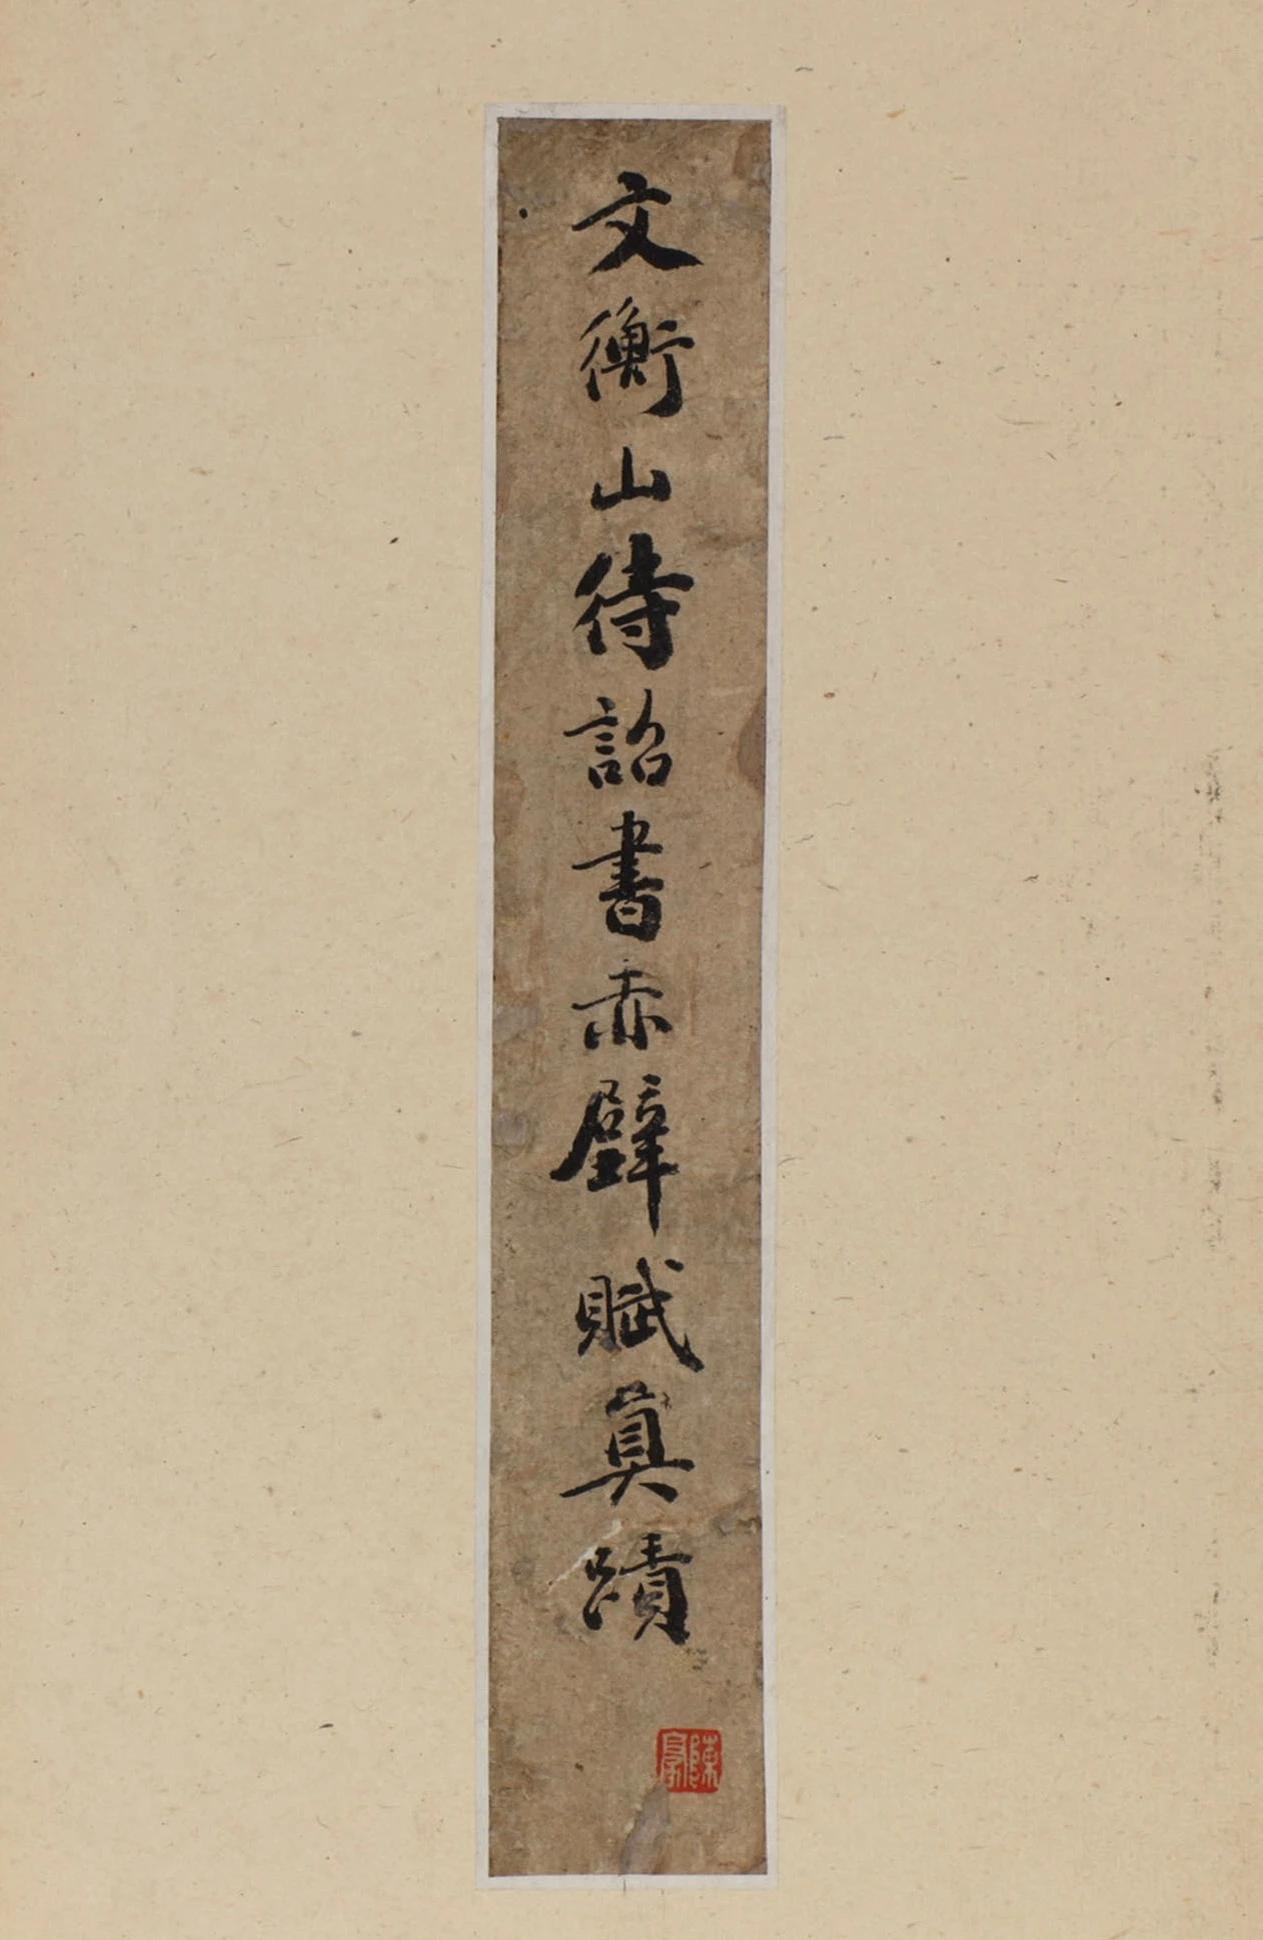 文衡山待詔書赤壁賦真蹟